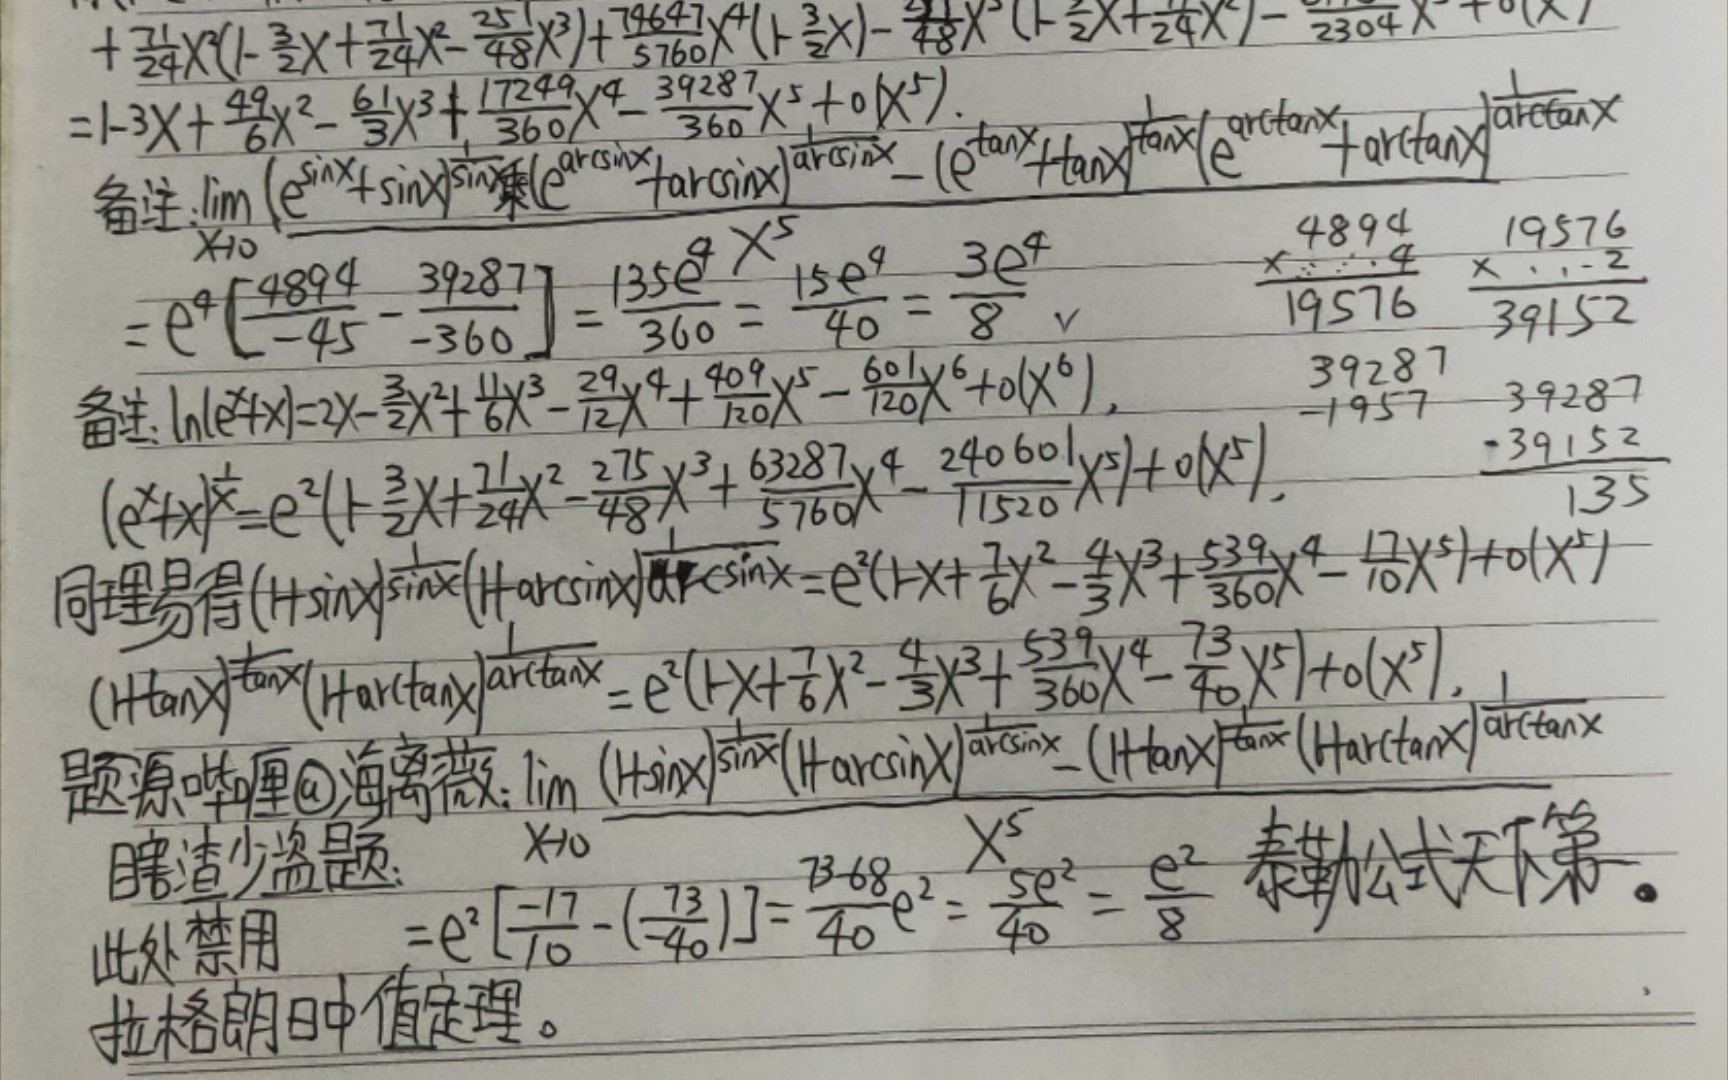 + 71/24 x²(1 - 3/2 x + 71/24 x² - 251/48 x³) + 74647/5760 x⁴(1 - 3/2 x) - /48 x⁵(1 - 3/2 x + 71/24 x²) - /2304 x⁵ + o(x⁵)
= 1 - 3x + 49/6 x² - 61/3 x³ + 17249/360 x⁴ - 39287/360 x⁵ + o(x⁵).
备注: lim x→0 [(e^sinx + sinx)^(1/sinx) (e^arcsinx + arcsinx)^(1/arcsinx) - (e^tanx + tanx)^(1/tanx) (e^arctanx + arctanx)^(1/arctanx)] / x⁵
= e⁴[4894/-45 - 39287/-360] = 135e⁴/360 = 15e⁴/40 = 3e⁴/8 √
4894 × 4 19576
19576 × 2 39152
备注: ln(e^x + x) = 2x - 3/2 x² + 11/6 x³ - 29/12 x⁴ + 409/120 x⁵ - 601/120 x⁶ + o(x⁶),
39287 - 1957
39287 - 39152 135
(e^x + x)^(1/x) = e²(1 - 3/2 x + 71/24 x² - 275/48 x³ + 63287/5760 x⁴ - 240601/11520 x⁵) + o(x⁵),
同理易得(1+sinx)^(1/sinx) (1+arcsinx)^(1/arcsinx) = e²(1 - x + 7/6 x² - 4/3 x³ + 539/360 x⁴ - 17/10 x⁵) + o(x⁵)
(1+tanx)^(1/tanx) (1+arctanx)^(1/arctanx) = e²(1 - x + 7/6 x² - 4/3 x³ + 539/360 x⁴ - 73/40 x⁵) + o(x⁵).
题源哔哩@海离薇: lim x→0 [(1+sinx)^(1/sinx) (1+arcsinx)^(1/arcsinx) - (1+tanx)^(1/tanx) (1+arctanx)^(1/arctanx)] / x⁵
瞎渣少盗题.
= e²[-17/10 - (73/-40)] = 73-68/40 e² = 5e²/40 = e²/8 泰勒公式天下第一。
此处禁用
拉格朗日中值定理。